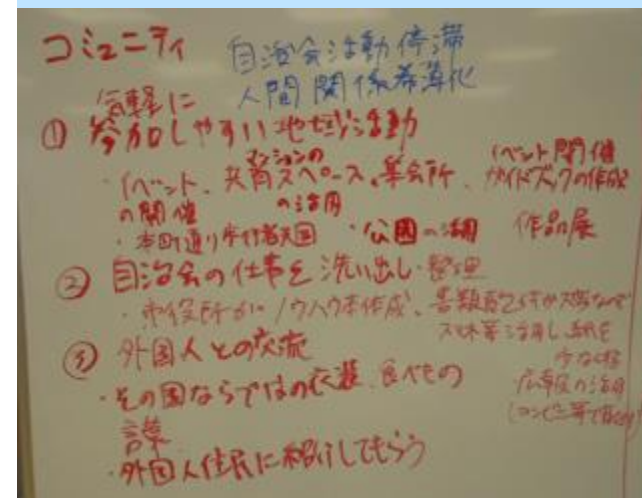 コミュニティ
自治会活動停滞
人間関係希薄化
気軽に
① 参加しやすい地域活動
・イベントの開催、共有スペース、集会所
マンションの
の活用
イベント開催
ガイドブックの作成
・本町通り歩行者天国 ・公園の活用 作品展
② 自治会の仕事を洗い出し・整理
・市役所が ノウハウ本作成、書類
活用し
広報
③ 外国人との交流
・その国ならではの衣装、食べもの
言葉
・外国人住民に紹介してもらう